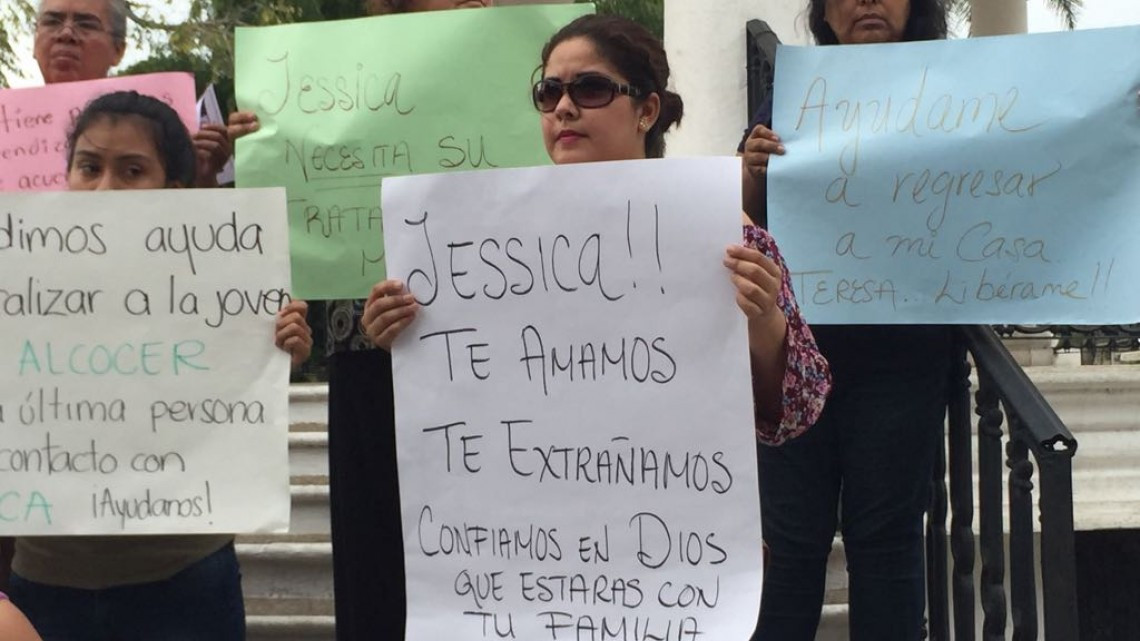 tiene
endiz
acuc
JESSICA
NECESITA SU
TRATA
M
dimos ayuda
ralizar a la joven
ALCOCER
última persona
contacto con
CA ¡Ayudanos!
JESSICA!!
TE AMAMOS
TE EXTRAÑAMOS
CONFIAMOS EN DIOS
QUE ESTARAS CON
TU FAMILIA
Ayudame
a regresar
a mi Casa
TERESA.. Libérame!!